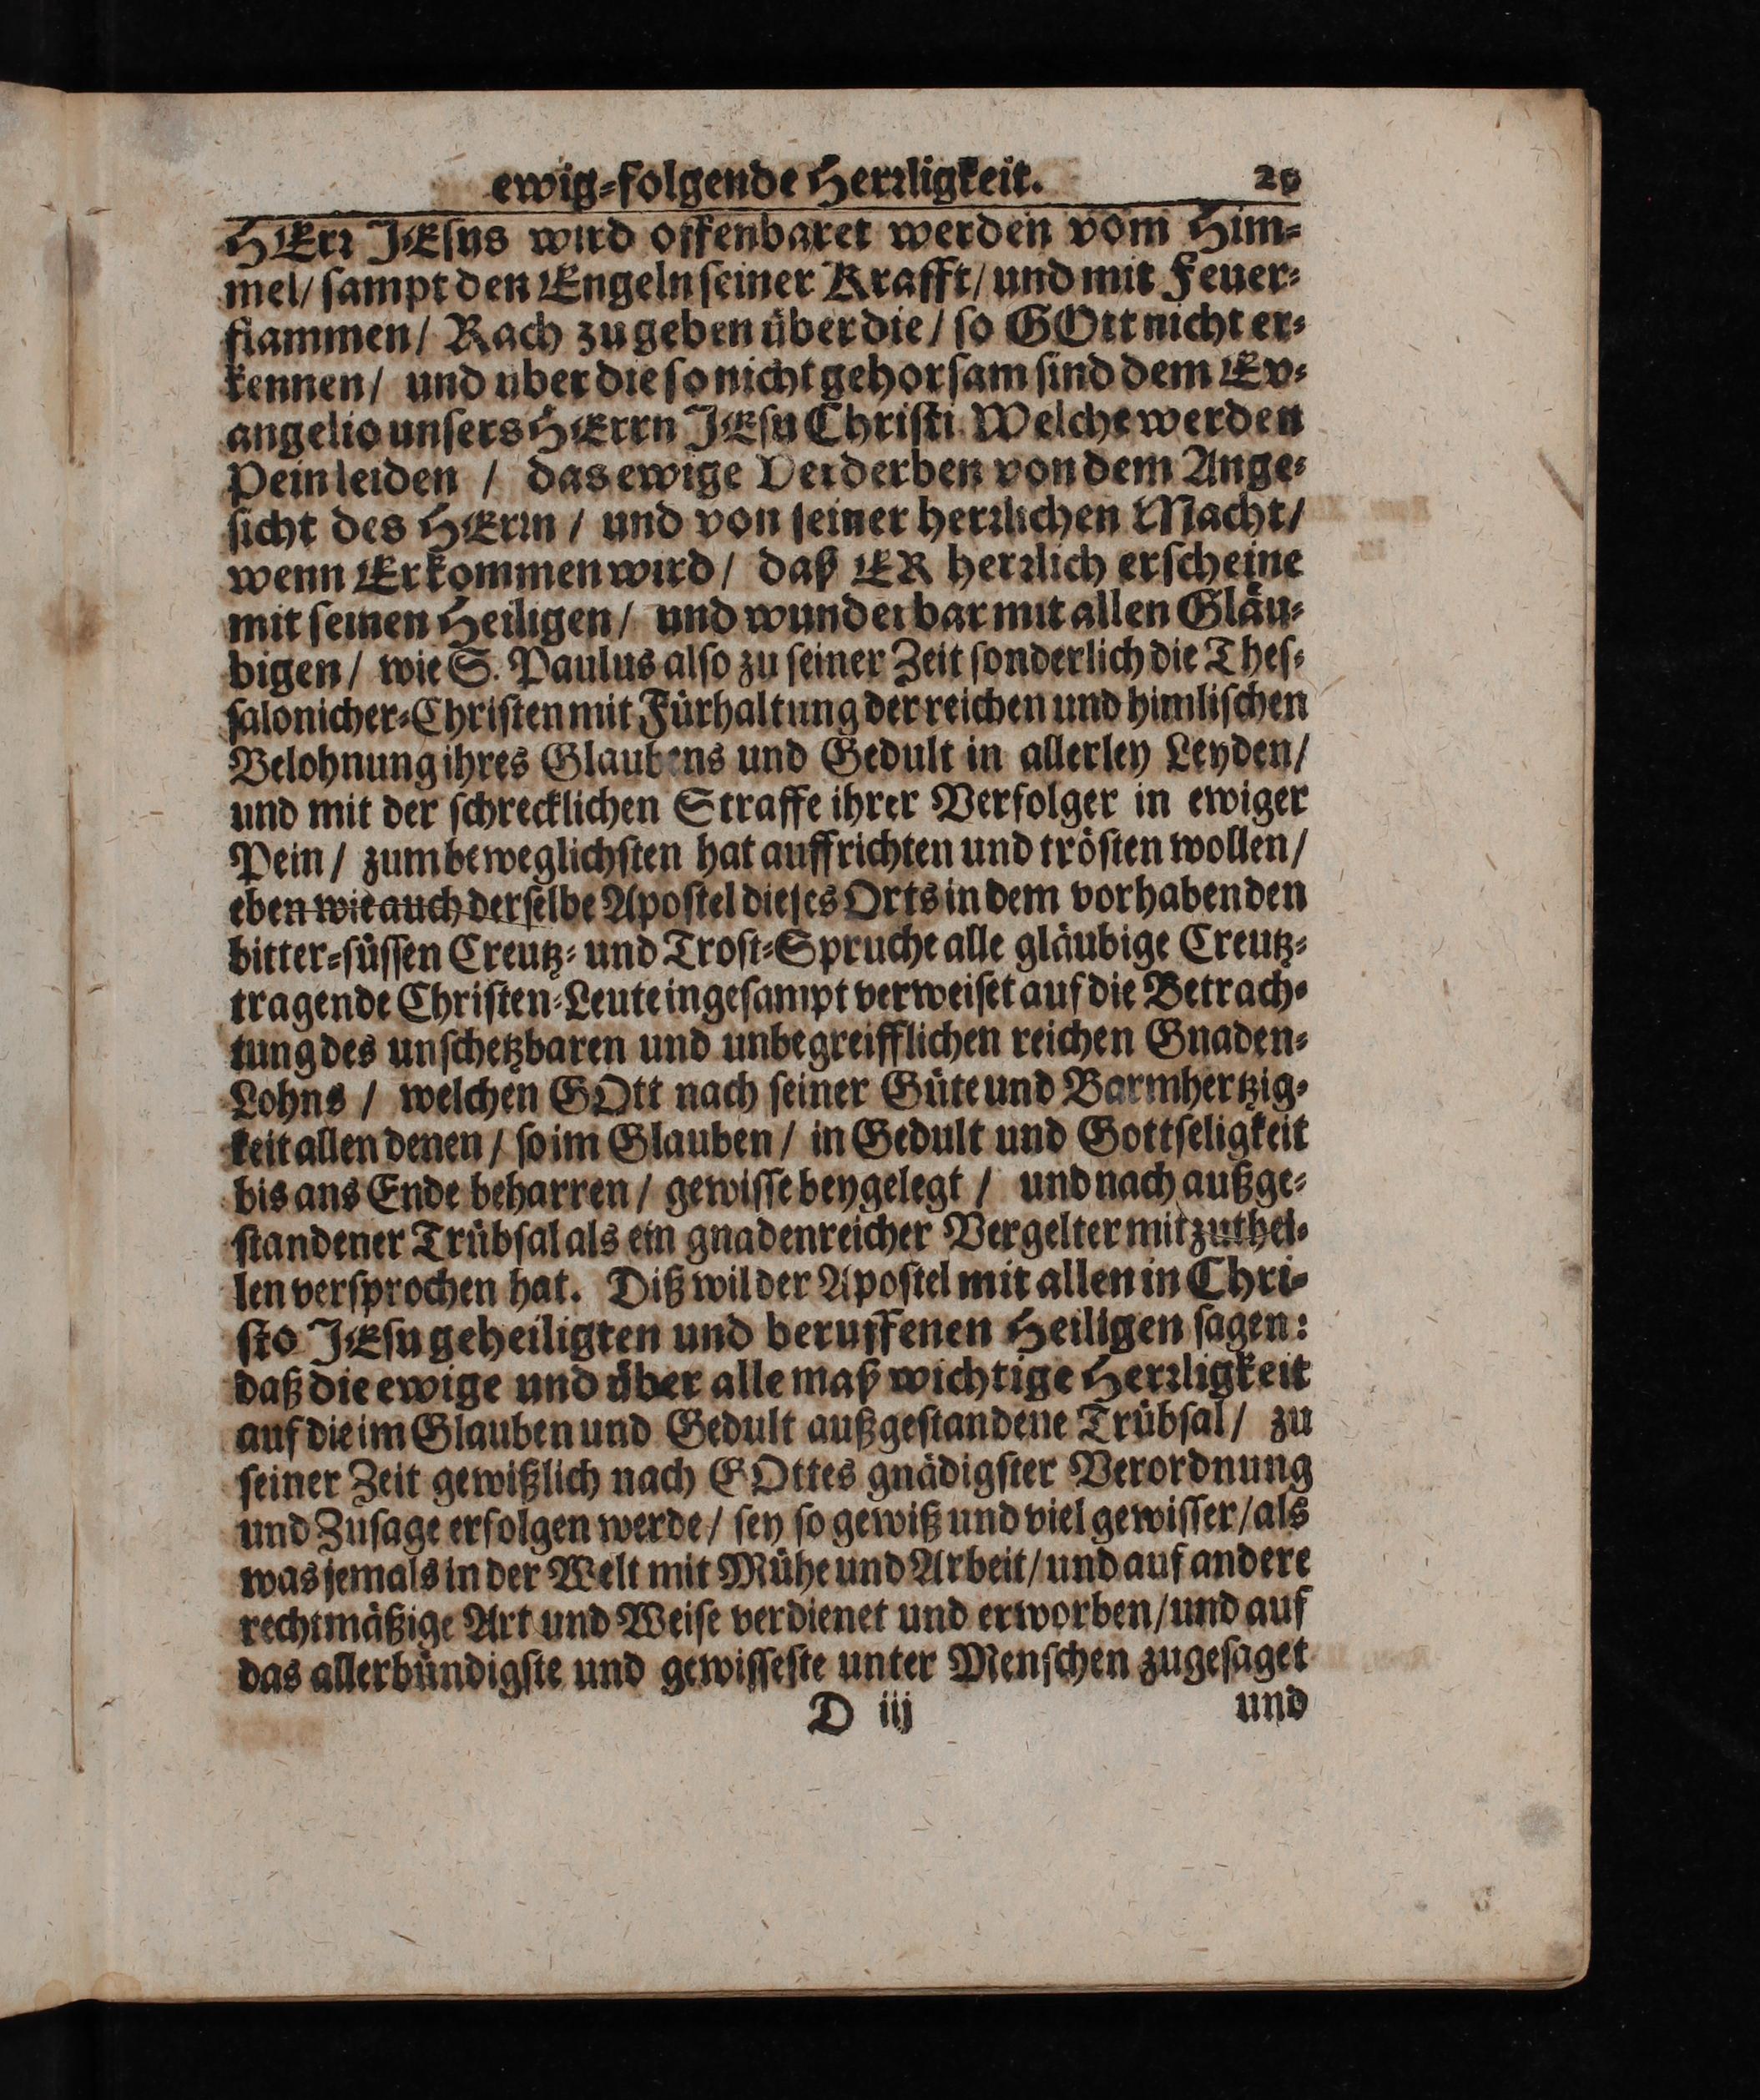 ewig-folgende Herrligkeit. 29
HErr JEsus wird offenbaret werden vom Him-
mel/ sampt den Engeln seiner Krafft/ und mit Feuer-
flammen/ Rach zu geben über die/ so GOtt nicht er-
kennen/ und uber die so nicht gehorsam sind dem Ev-
angelio unsers HErrn JEsu Christi. Welche werden
Pein leiden / das ewige Verderben von dem Ange-
sicht des HErrn / und von seiner herrlichen Macht/
wenn Er kommen wird/ daß ER herrlich erscheine
mit seinen Heiligen/ und wunderbar mit allen Gläu-
bigen/ wie S. Paulus also zu seiner Zeit sonderlich die Thes-
salonicher-Christen mit Fürhaltung der reichen und himlischen
Belohnung ihres Glaubens und Gedult in allerley Leyden/
und mit der schrecklichen Straffe ihrer Verfolger in ewiger
Pein/ zum beweglichsten hat auffrichten und trösten wollen/
eben wie auch derselbe Apostel dieses Orts in dem vorhabenden
bitter-süssen Creutz- und Trost-Spruche alle gläubige Creutz-
tragende Christen-Leute ingesampt verweiset auf die Betrach-
tung des unschetzbaren und unbegreifflichen reichen Gnaden-
Lohns / welchen GOtt nach seiner Güte und Barmhertzig-
keit allen denen/ so im Glauben/ in Gedult und Gottseligkeit
bis ans Ende beharren/ gewisse beygelegt / und nach außge-
standener Trübsal als ein gnadenreicher Vergelter mitzuthei-
len versprochen hat. Diß wil der Apostel mit allen in Chri-
sto JEsu geheiligten und beruffenen Heiligen sagen:
daß die ewige und über alle maß wichtige Herrligkeit
auf die im Glauben und Gedult außgestandene Trübsal/ zu
seiner Zeit gewißlich nach GOttes gnädigster Verordnung
und Zusage erfolgen werde/ sey so gewiß und viel gewisser/ als
was jemals in der Welt mit Mühe und Arbeit/ und auf andere
rechtmäßige Art und Weise verdienet und erworben/ und auf
das allerbündigste und gewisseste unter Menschen zugesaget
D iij und